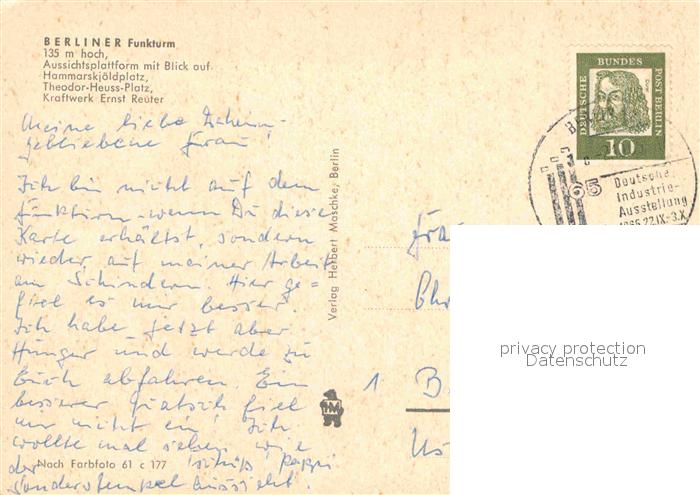 BERLINER Funkturm
135 m hoch,
Aussichtsplattform mit Blick auf
Hammarskjöldplatz,
Theodor-Heuss-Platz,
Kraftwerk Ernst Reuter
Meine liebe Daheim-
gebliebene Frau!
Ich bin nicht auf dem
Funkturm wenn Du diese
Karte erhältst, sondern
wieder auf meiner Arbeit
am Schindern. Hier ge=
fiel es mir besser.
Ich habe jetzt aber
Hunger und werde zu
Euch abfahren. Ein
besserer Quatsch fiel
mir nicht ein! Ich
wollte mal sehen, wie
der
Sonderstempel aussieht.
Nach Farbfoto 61 c 177
Verlag Herbert Maschke, Berlin
HM
DEUTSCHE BUNDES POST BERLIN
10
Deutsche
Industrie-
Ausstellung
1965 22.IX.-3.X.
Frau
1 B
privacy protection
Datenschutz